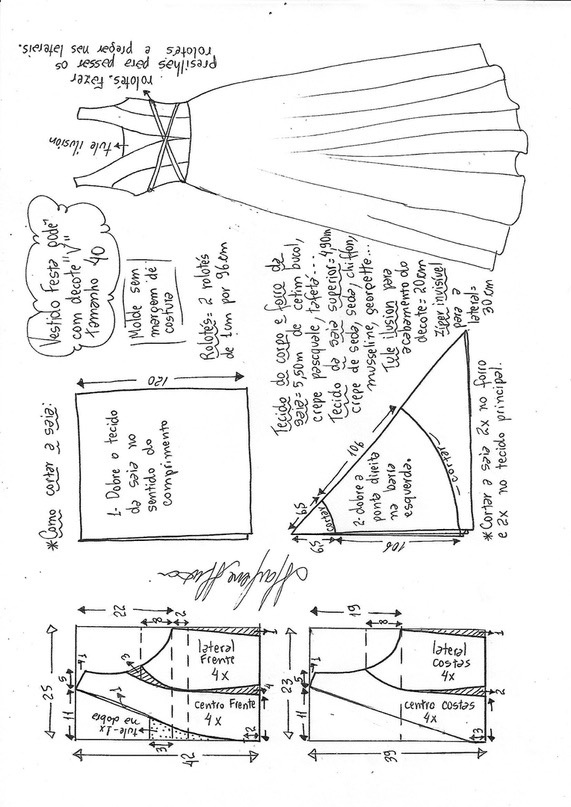 presilhas para passar os
rolotés e pregar nas laterais.
rolotés. Fazer
tule ilusion
Vestido Festa pode
com decote "V"
tamanho 40
Molde sem
margem de
costura
Rolotês= 2 rolotés
de 1cm por 96cm
Tecido do corpo e forro da
saia= 5,50m de cetim bucol,
crepe pasquale, tafetá...
Tecido da saia superior= 4,90m
crepe de seda, seda, chiffon,
musseline, georgette...
Tule ilusion para
acabamento do
decote= 20cm
Zíper invisível
para a
lateral=
30cm
*Como cortar a saia:
120
1- Dobre o tecido
da saia no
sentido do
comprimento
2- dobre a
ponta direita
na barra
esquerda.
cortar
cortar
59
106
59
106
*Cortar a saia 2x no forro
e 2x no tecido principal.
Marlene Mukai
22
8
2
25
5
1
11
3
1
lateral
Frente
4x
centro Frente
4x
tule-1x
na dobra
1
4
2
3
42
19
8
23
5
1
11
lateral
costas
4x
centro costas
4x
1
2
3
39